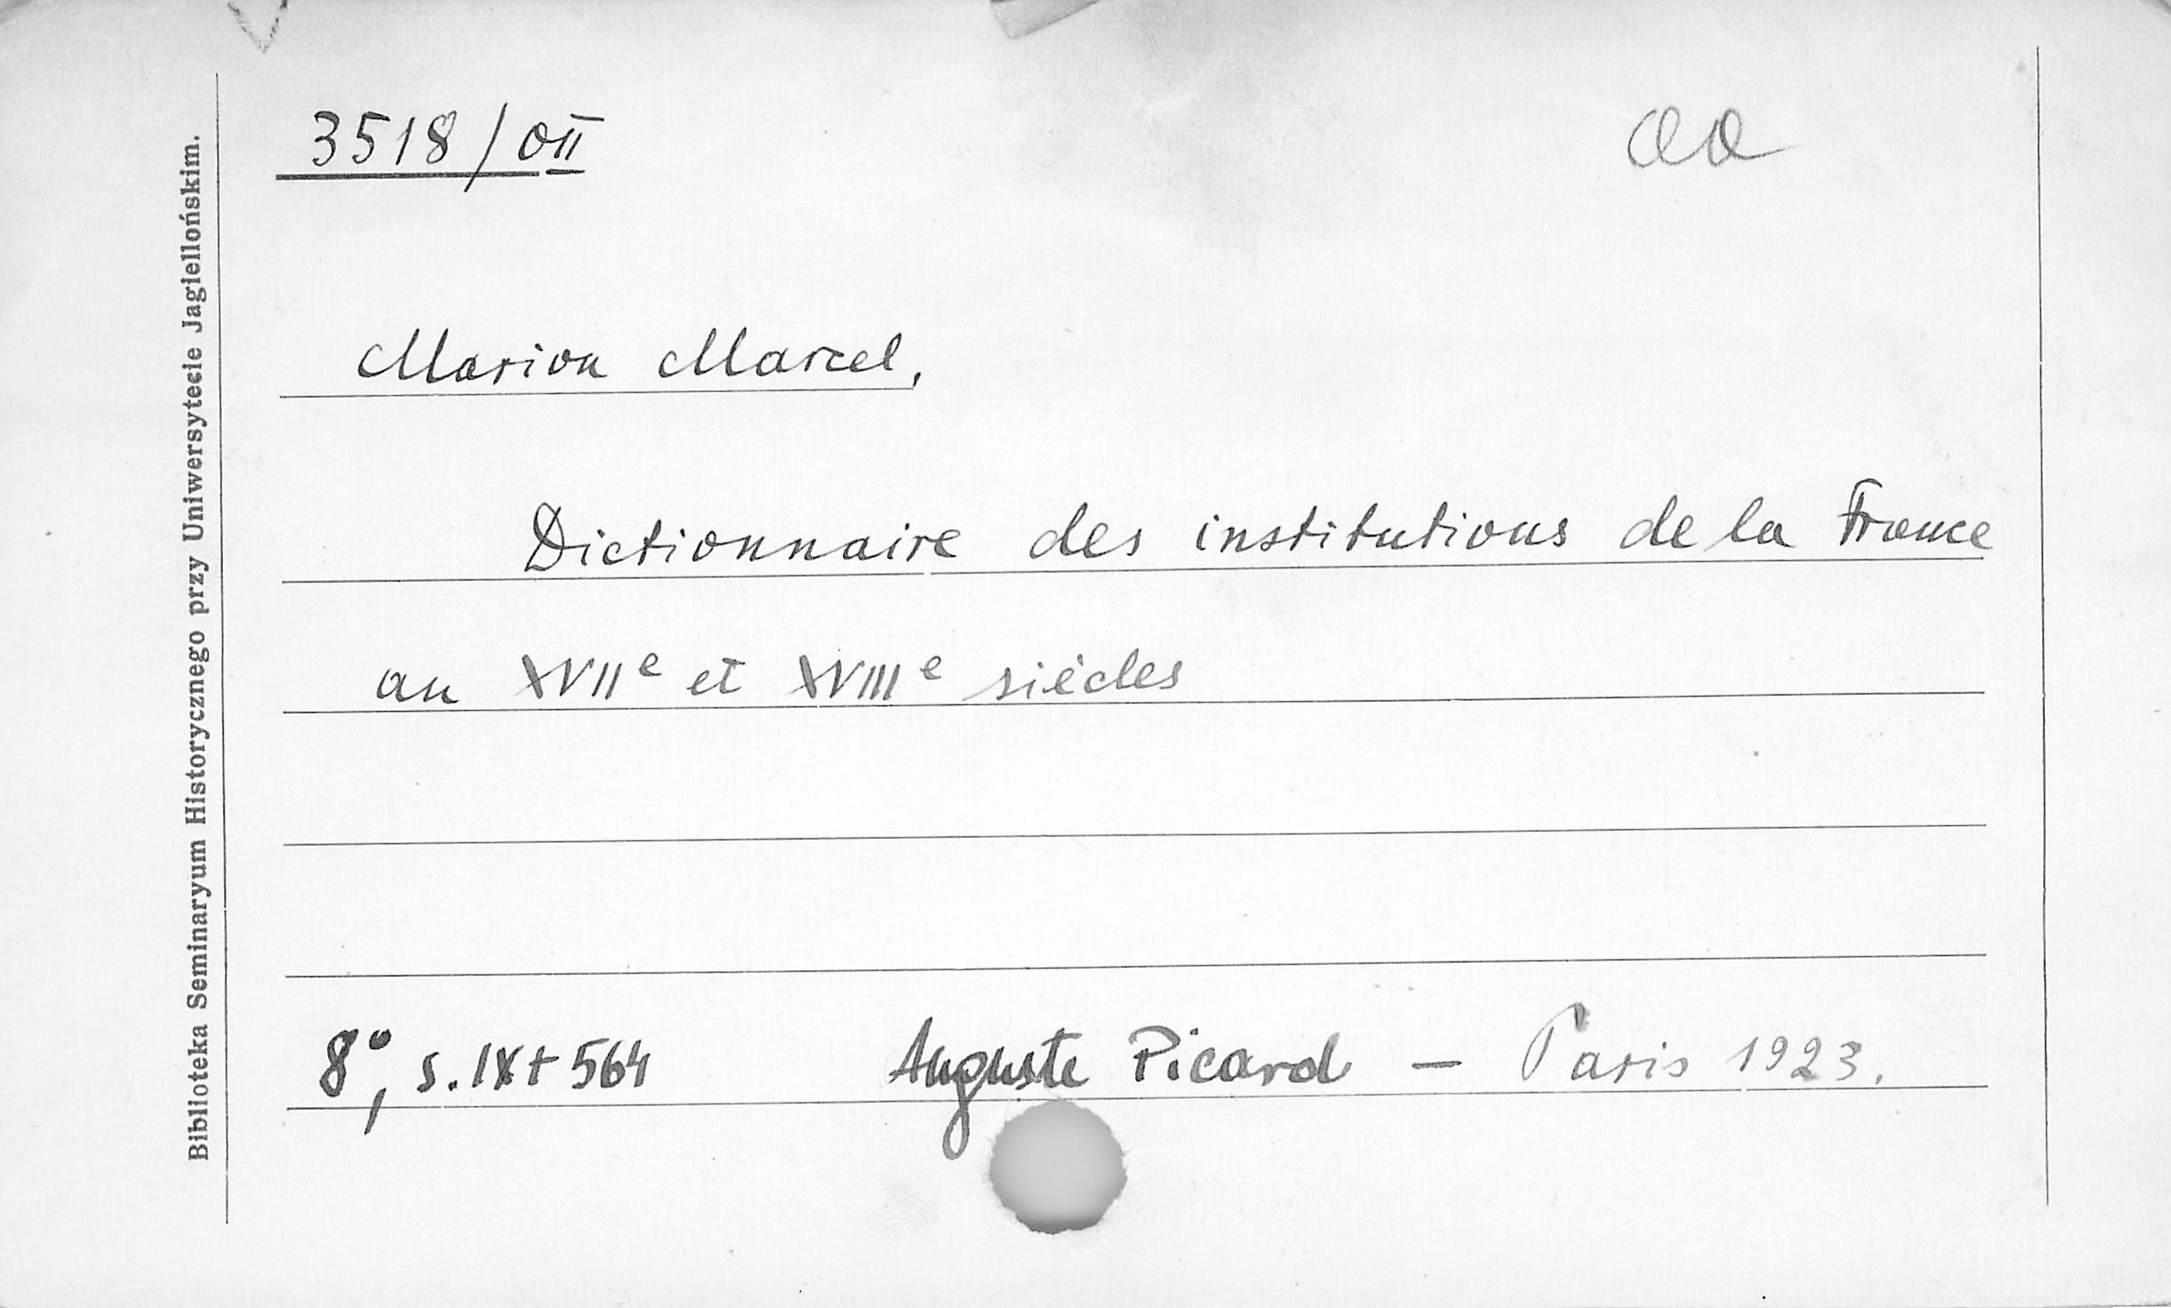 3518/OII
aa
Marion Marcel,
Dictionnaire des institutions de la France
au XVIIe et XVIIIe siècles
8°, s. IX+564 Auguste Picard — Paris 1923.
Biblioteka Seminaryum Historycznego przy Uniwersytecie Jagiellońskim.